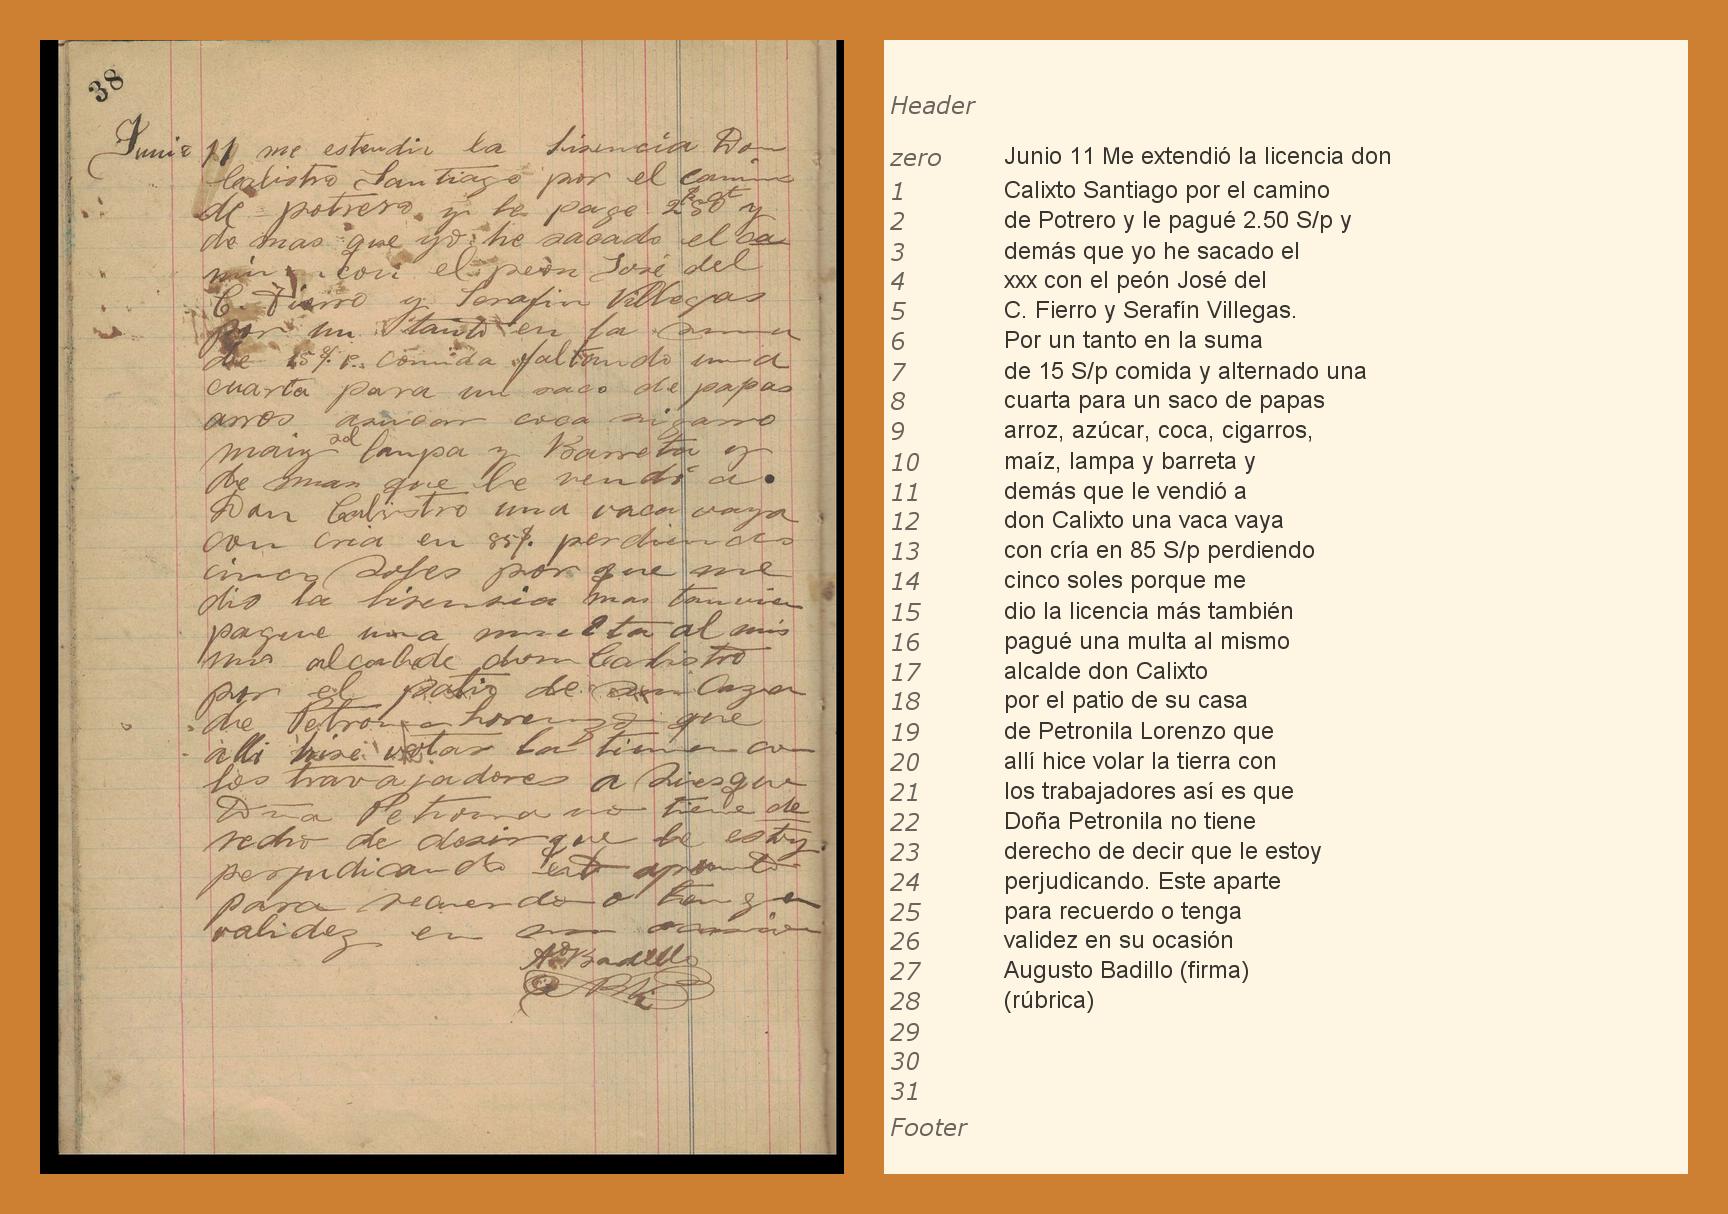 38
Junio 11 me estendio la lisencia Don
Calistro Santiago por el camino
de potrero y le page 2.50 y
de mas que yo he sacado el ca
con el peon José del
C. Fierro y Serafin Villegas
por un tanto en la suma
de 15 comida faltando una
cuarta para un saco de papas
arros asucar coca sigarro
maiz sal lampa y Barreta y
de mas que le vendi a
Don Calistro una vaca vaya
con cria en 85 perdiendo
cinco soles por que me
dio la lisensia mas tanvien
pague una multa al mis
mo alcalde don Calistro
por el patio de Caza
de Petrona Lorenzo que
alli hise votar la tierra con
los travajadores a
Doña Petrona no tiene de
recho de desir que le estoy
perjudicando apunto
para recuerdo o tenga
validez en su ocasion
Ato Badillo
Header
zero Junio 11 Me extendió la licencia don
1 Calixto Santiago por el camino
2 de Potrero y le pagué 2.50 S/p y
3 demás que yo he sacado el
4 xxx con el peón José del
5 C. Fierro y Serafín Villegas.
6 Por un tanto en la suma
7 de 15 S/p comida y alternado una
8 cuarta para un saco de papas
9 arroz, azúcar, coca, cigarros,
10 maíz, lampa y barreta y
11 demás que le vendió a
12 don Calixto una vaca vaya
13 con cría en 85 S/p perdiendo
14 cinco soles porque me
15 dio la licencia más también
16 pagué una multa al mismo
17 alcalde don Calixto
18 por el patio de su casa
19 de Petronila Lorenzo que
20 allí hice volar la tierra con
21 los trabajadores así es que
22 Doña Petronila no tiene
23 derecho de decir que le estoy
24 perjudicando. Este aparte
25 para recuerdo o tenga
26 validez en su ocasión
27 Augusto Badillo (firma)
28 (rúbrica)
29
30
31
Footer